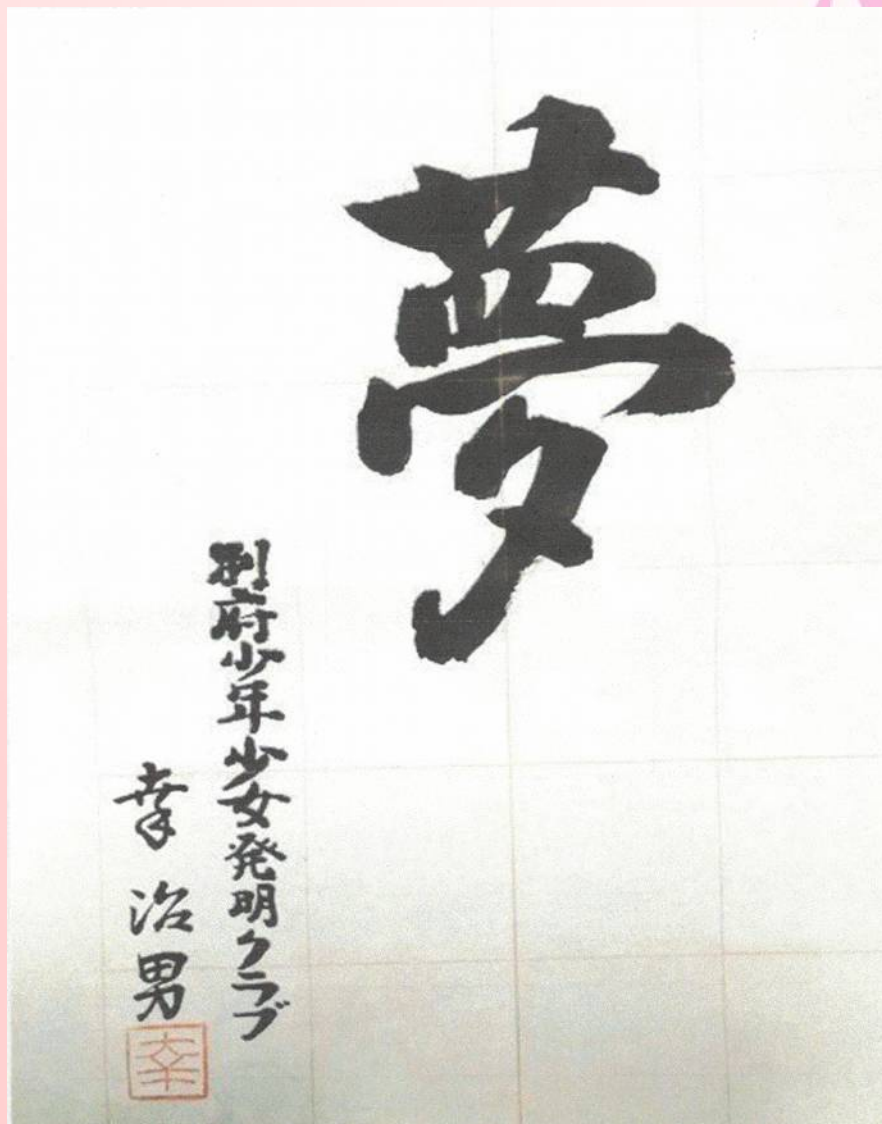 夢
別府少年少女発明クラブ
幸治男
幸